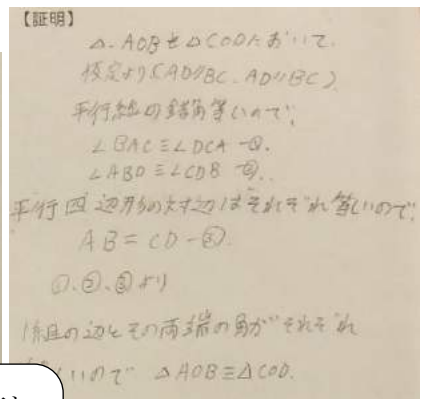 【証明】
△AOBと△CODにおいて.
仮定より(AD//BC. AD//BC)
平行線の錯角等しいので,
∠BAC≡∠DCA -①.
∠ABD≡∠CDB -②.
平行四辺形の対辺はそれぞれ等しいので,
AB=CD-③.
①.②.③より
1組の辺とその両端の角がそれぞれ
しいので △AOB≡△COD.